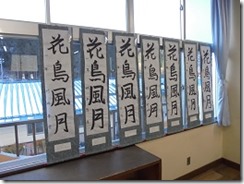 花鳥風月
花鳥風月
花鳥風月
花鳥風月
花鳥風月
花鳥風月
花鳥風月